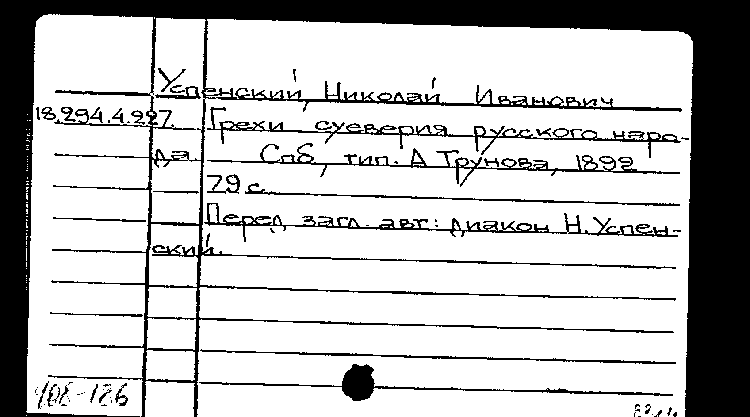 Успенский, Николай Иванович
18.294.4.227. Грехи суеверия русского наро-
да. Спб, тип. А Трунова, 1892
79 с.
Перед загл. авт: диакон Н. Успен-
ский.